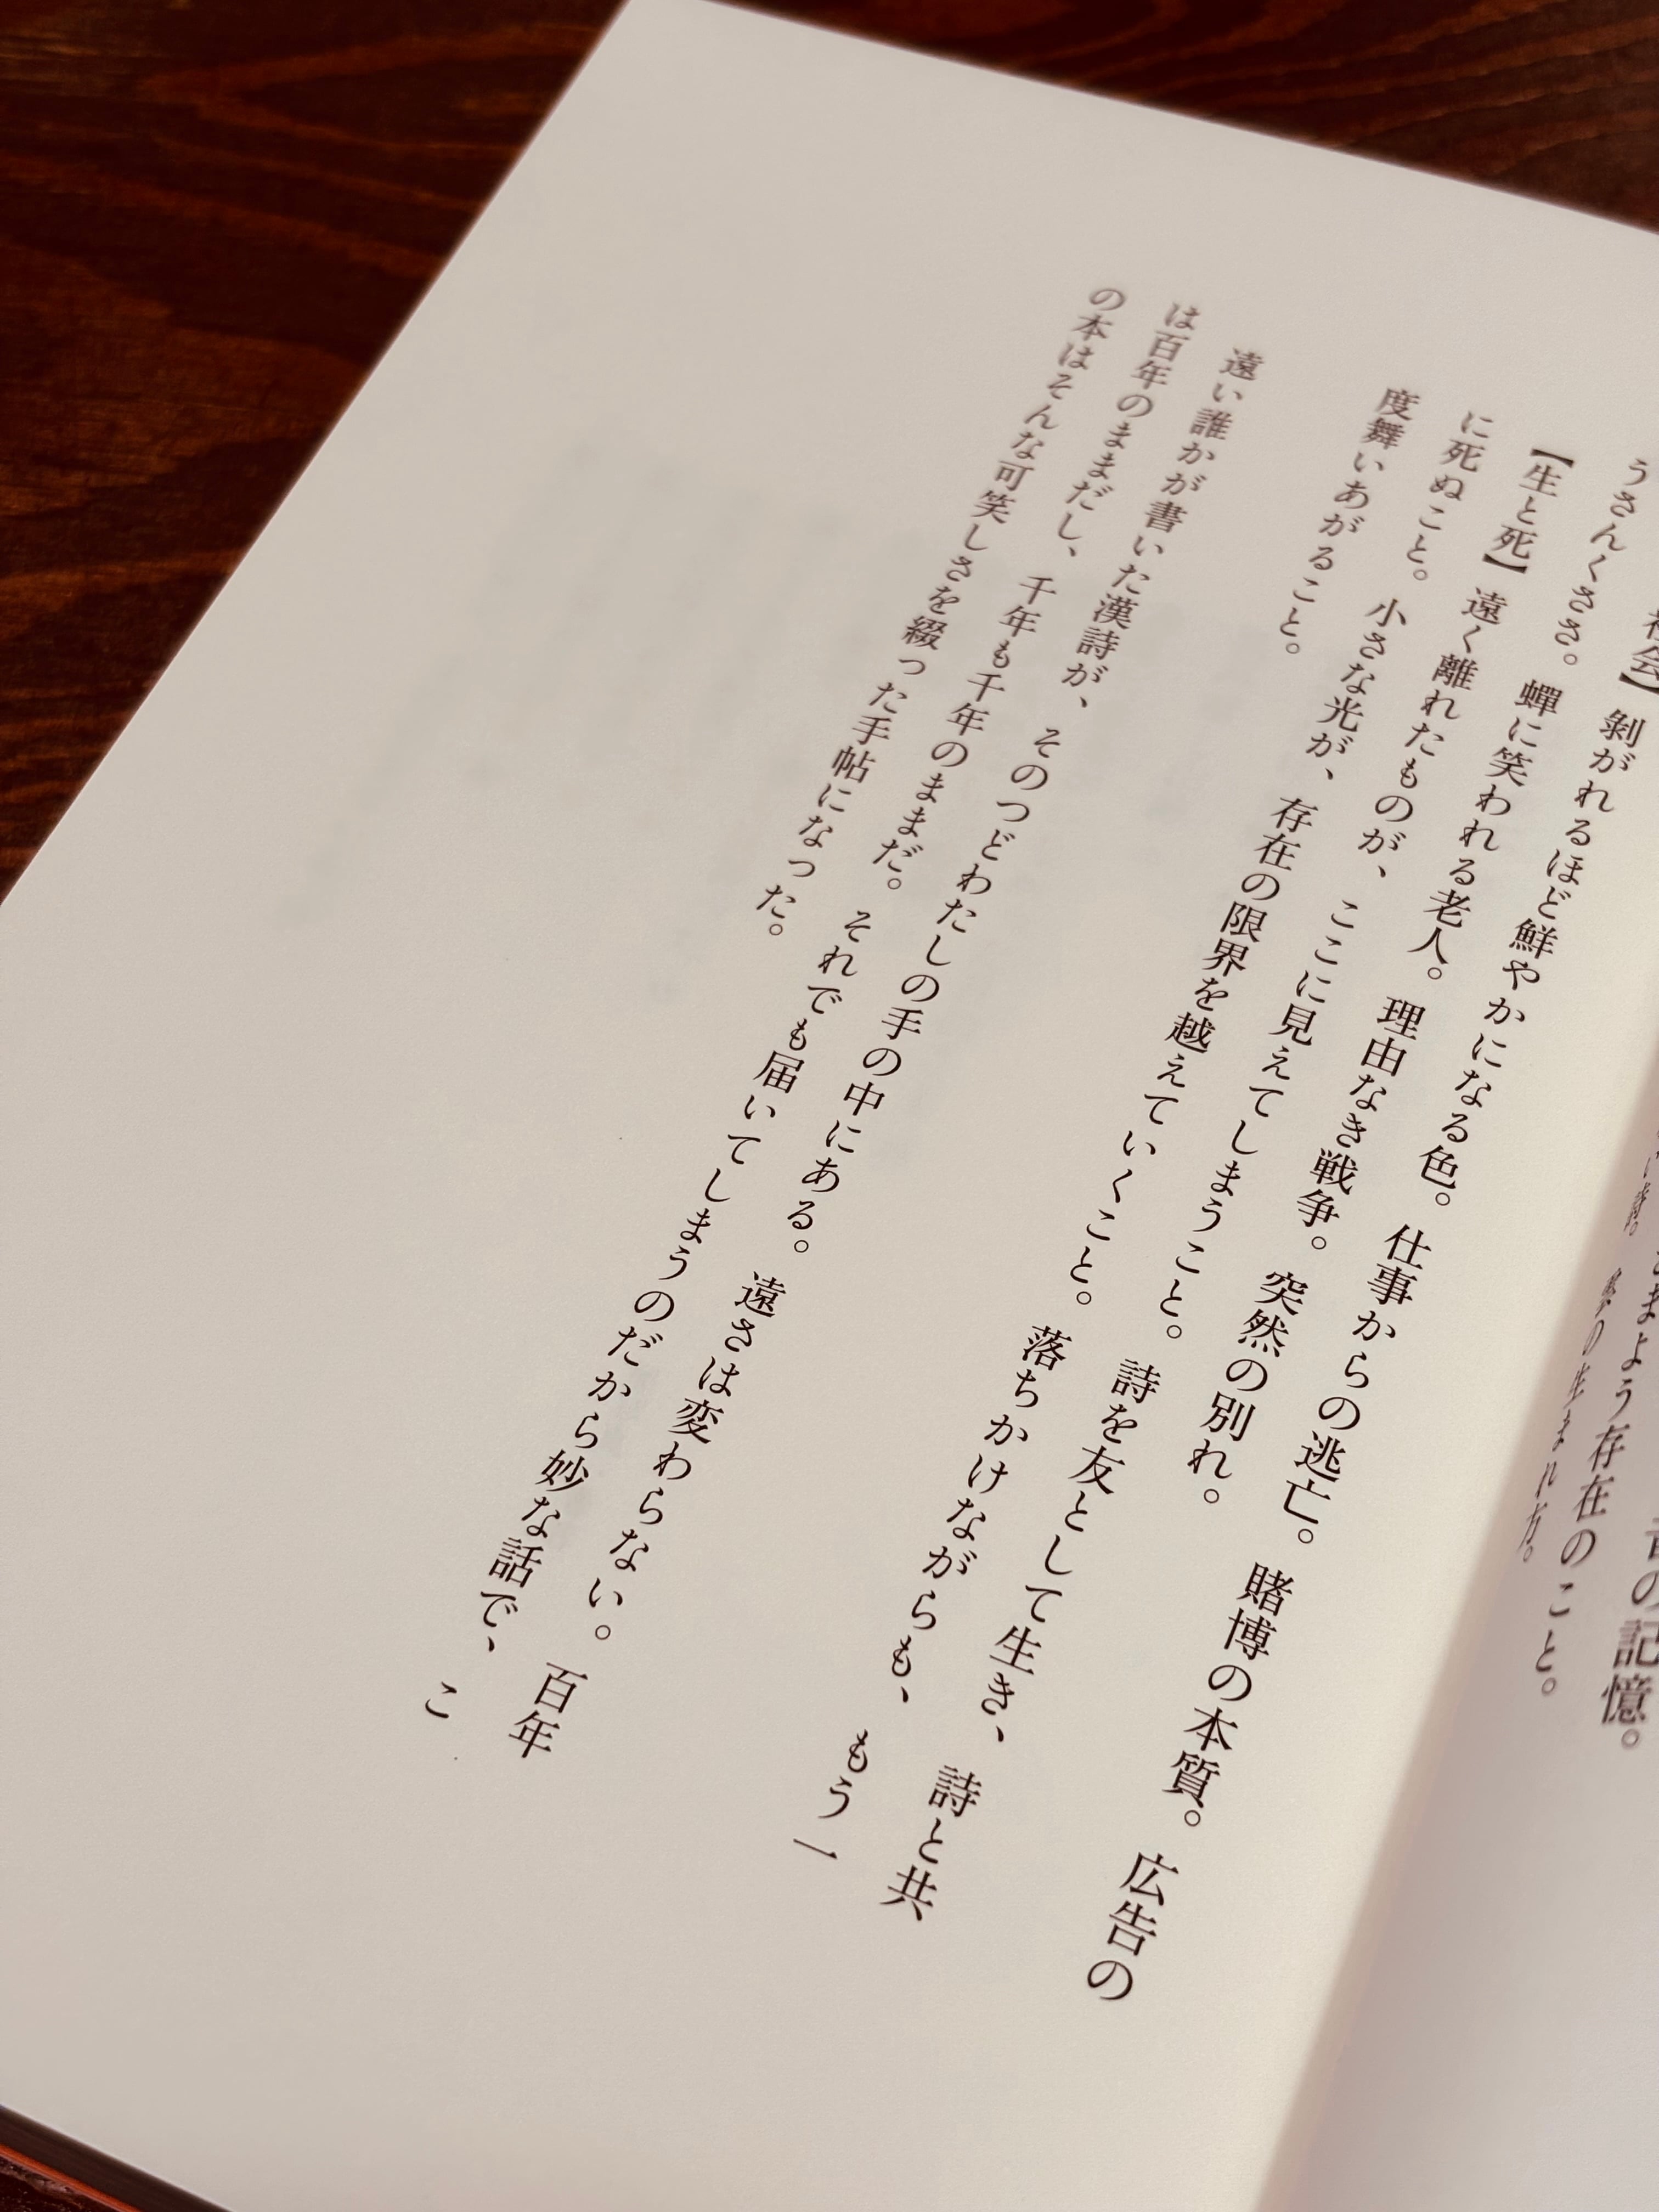 の記憶。
まよう存在のこと。
の生まれ方。
社会】剝がれるほど鮮やかになる色。仕事からの逃亡。賭博の本質。広告の
うさんくささ。蟬に笑われる老人。理由なき戦争。突然の別れ。
【生と死】遠く離れたものが、ここに見えてしまうこと。詩を友として生き、詩と共
に死ぬこと。小さな光が、存在の限界を越えていくこと。落ちかけながらも、もう一
度舞いあがること。
遠い誰かが書いた漢詩が、そのつどわたしの手の中にある。遠さは変わらない。百年
は百年のままだし、千年も千年のままだ。それでも届いてしまうのだから妙な話で、こ
の本はそんな可笑しさを綴った手帖になった。